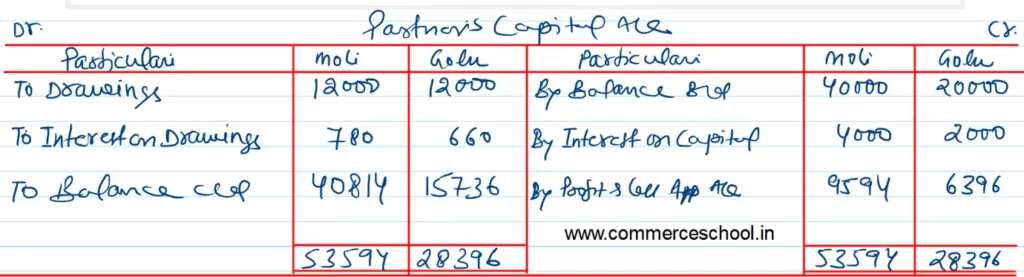 Dr. Partner's Capital A/c Cr.
Particulars Moli Golu Particulars Moli Golu
To Drawings 12000 12000 By Balance b/d 40000 20000
To Interest on Drawings 780 660 By Interest on Capital 4000 2000
To Balance c/d 40814 15736 By Profit & Loss App A/c 9594 6396
www.commerceschool.in
53594 28396 53594 28396